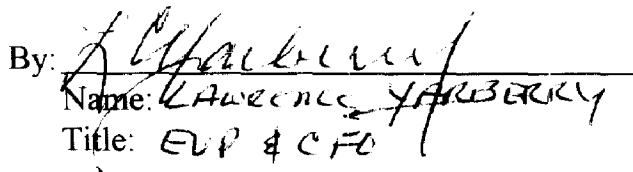 By:
Name: LAWRENCE YARBERRY
Title: EVP & CFO